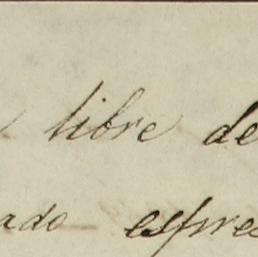 libre de
ado espres